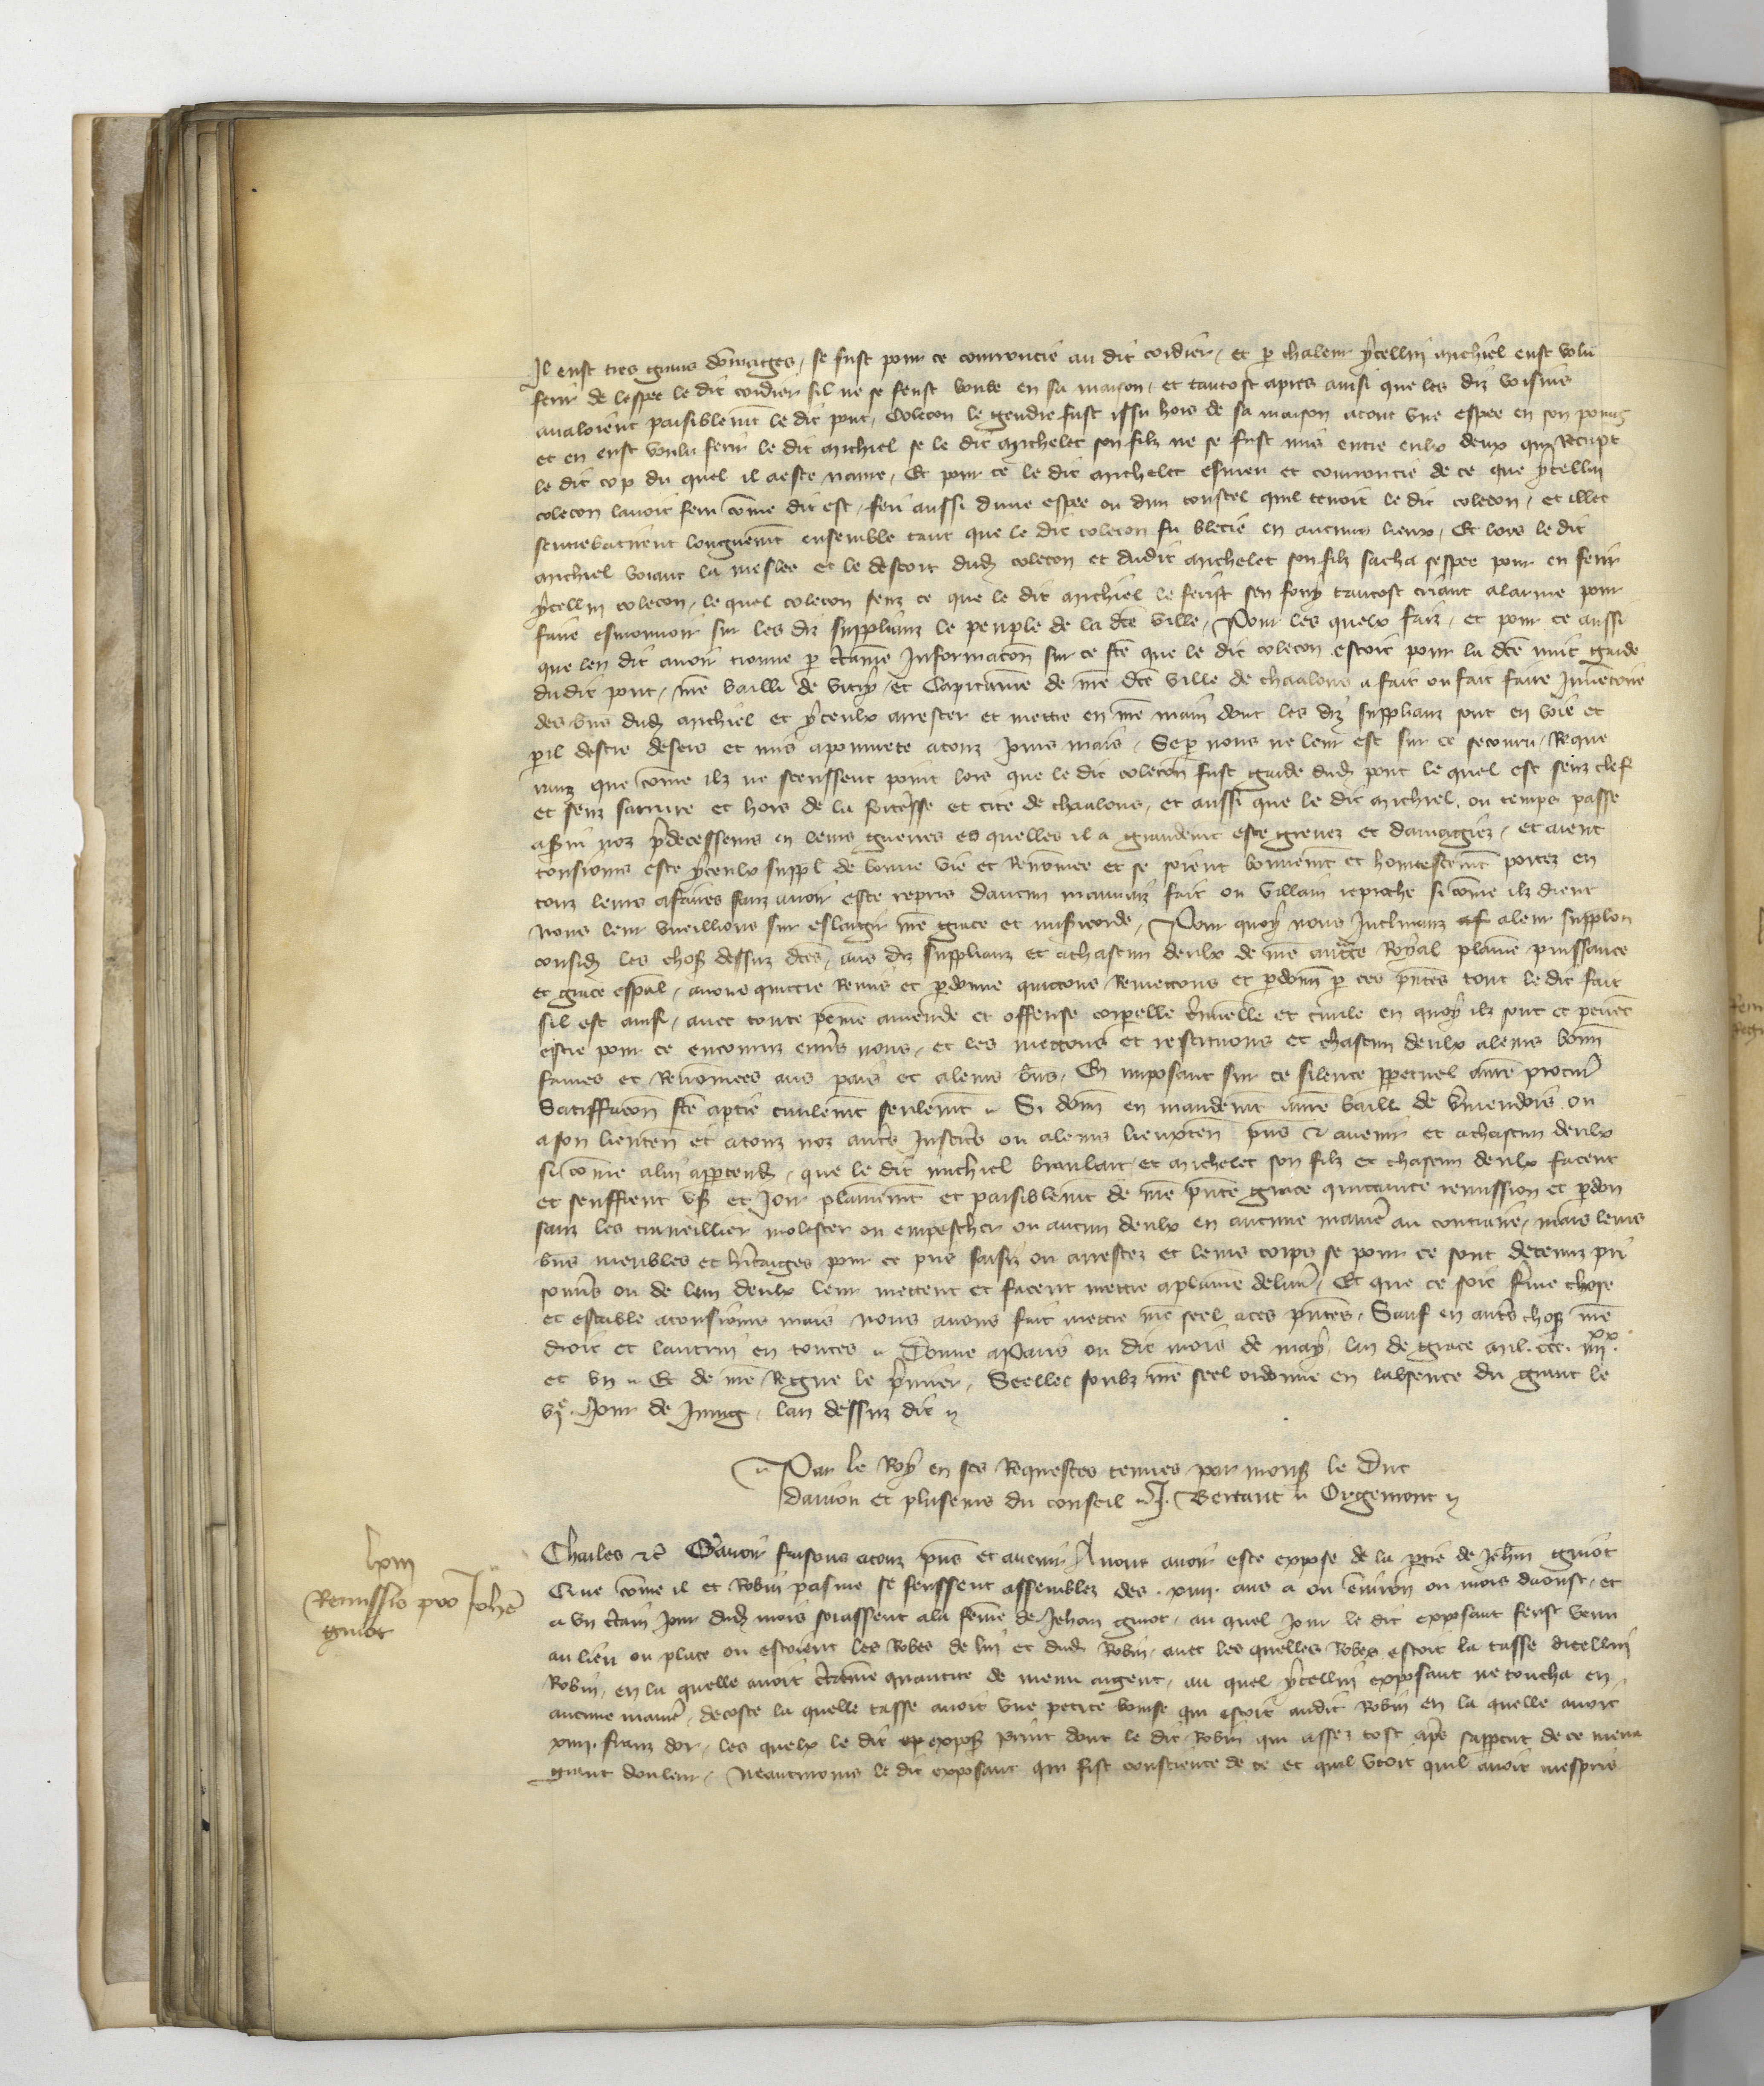 Il eust tres grans dommages, se fust pour ce courroucie au dit cordier, et p chaleur ycellui Michiel eust volu
ferir de lespee le dit cordier sil ne se feust boute en sa maison, et tantost apres ainsi que les diz voisins
avaloient paisiblemt le dit pont, Colecon le gendre fust issu hors de sa maison atout une espee en son poing
et en eust voulu ferir le dit Michiel se le dit Michelet son filz ne se fust mis entre eulx deux qui Recupt
le dit cop du quel il a este navre, Et pour ce le dit Michelet esmeu et courroucie de ce que ycellui
colecon lavoit feru come dit est, feri aussi dune espee ou dun coustel quil tenoit le dit colecon, et illec
sentrebatirent longuemt ensemble tant que le dit colecon fu blecie en aucuns lieux, Et lors le dit
Michiel voiant la meslee et le descort dud colecon et dudit Michelet son filz sacha sespee pour en ferir
ycellui colecon, le quel colecon senz ce que le dit Michiel le ferist sen fouy tantost criant alarme pour
faire esmouvoir sur les diz suppliants le peuple de la dce ville, Pour les quelx faiz, et pour ce aussi
que len dit avoir trouve p ctaine Informacon sur ce fce que le dit colecon estoit pour la dce nuit garde
dudit pont, nre bailli de vitry, et Capitaine de nre dce ville de chaalons a fait ou fait faire Inventoire
des biens dud Michiel et yceulx arrester et mettre en nre main dont les diz suppliants sont en voie et
pil destre desers et mis apovrete atouz jours mais, Se p nous ne leur est sur ce secouru, Reque
rans que come ilz ne sceussent point lors que le dit colecon fust garde dud pont le quel est senz clef
et senz sarrure et hors de la forteresse et cite de chaalons, et aussi que le dit Michiel, ou temps passe
a servi noz predecesseurs en leurs guerres es quelles il a grandemt este grevez et damagiez, et aient
tousjours este yceulx suppl de bonne vie et Renomee et se soient bonnemt et honnestemt portez en
touz leurs affaires sanz avoir este repris daucun mauvaiz fait ou villain reproche si come ilz dient
Nous leur vueillions sur eslargir nre grace et misericorde, Pour quoy nous Inclinans aleur supplon
consid les choses dessuz dces, aus diz suppliants et achascun deulx de nre aucte Royal plaine puissance
et grace espal, avons quictie Remis et pdonne quictons Remettons et pdonn p ces pntes tout le dit fait
sil est ainsi, avec toute peine amende et offense corpelle criminelle et civile en quoy ilz sont et pevet
estre pour ce encouruz envs nous, et les mettons et restituons et chascun deulx aleurs bonn
fames et Renomees aus pais et aleurs biens, En imposant sur ce silence ppetuel a nre procur
Satiffacon fce aptie civilemt seulemt Si donn en mandemt a nre baill de Vermendois ou
a son lieuten et atouz noz autres Justiciers ou aleurs lieuxten pns et avenir et achascun deulx
si come alui apptend, que le dit Michiel Braulart et Michelet son filz et chascun deulx facent
et seuffrent user et Joir plainemt et paisiblemt de nre pnte grace quictance remission et pdon
sanz les traveillier molester ou empescher ou aucun deulx en aucune maniere au contraire, mais leurs
biens meubles et heritaiges pour ce pris saisiz ou arrestez et leurs corps se pour ce sont detenuz pri
sonniers ou de lun deulx leur mettent et facent mettre aplaine delivr, Et que ce soit ferme chose
et estable atousjours mais nous avons fait mettre nre seel aces pntes, Sauf en autres choses nre
droit et lautrui en toutes Donne aParis ou dit mois de may, lan de grace Mil ccc iiii xx
et un Et de nre Regne le premier, Seellee soubz nre seel ordonne en labsence du grant le
vje Jour de Juing, lan dessuz dit
Par le Roy en ses Requestes tenues par mons le Duc
danjou et pluseurs du conseil J. Bertaut Orgemont
lxiii
Remissio pro Johe
guiot
Charles etc Savoir faisons atouz pns et avenir A nous avoir este expose de la ptie de Jehan guiot
Que come il et Robin pasme se feussent assemblez des xiiii ans a ou environ ou mois daoust, et
a un ctain jour dud mois soiassent ala feme de Jehan guiot, au quel jour le dit exposant feust venu
au lieu ou place ou estoient les Robes de lui et dud Robin, avec les quelles Robes estoit la tasse dicellui
Robin, en la quelle avoit ctaine quantite de menu argent, au quel ycellui exposant ne toucha en
aucune manier, decoste la quelle tasse avoit une petite bourse qui estoit audit Robin en la quelle avoit
xiiii franz dor, les quelx le dit expos print dont le dit Robin qui assez tost apres sappcut de ce mena
grant douleur, Neantmoins le dit exposant qui fist conscience de ce et quil veoit quil avoit mespris